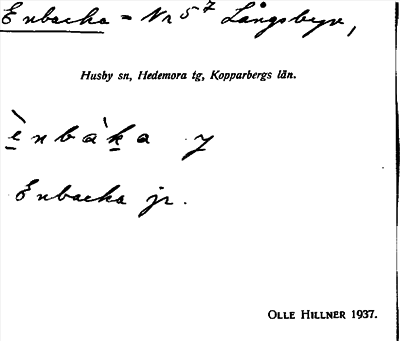 Enbacka = Nr 5⁷ Långsbyn,
Husby sn, Hedemora tg, Kopparbergs län.
ènbàka 7
Enbacka jr.
OLLE HILLNER 1937.